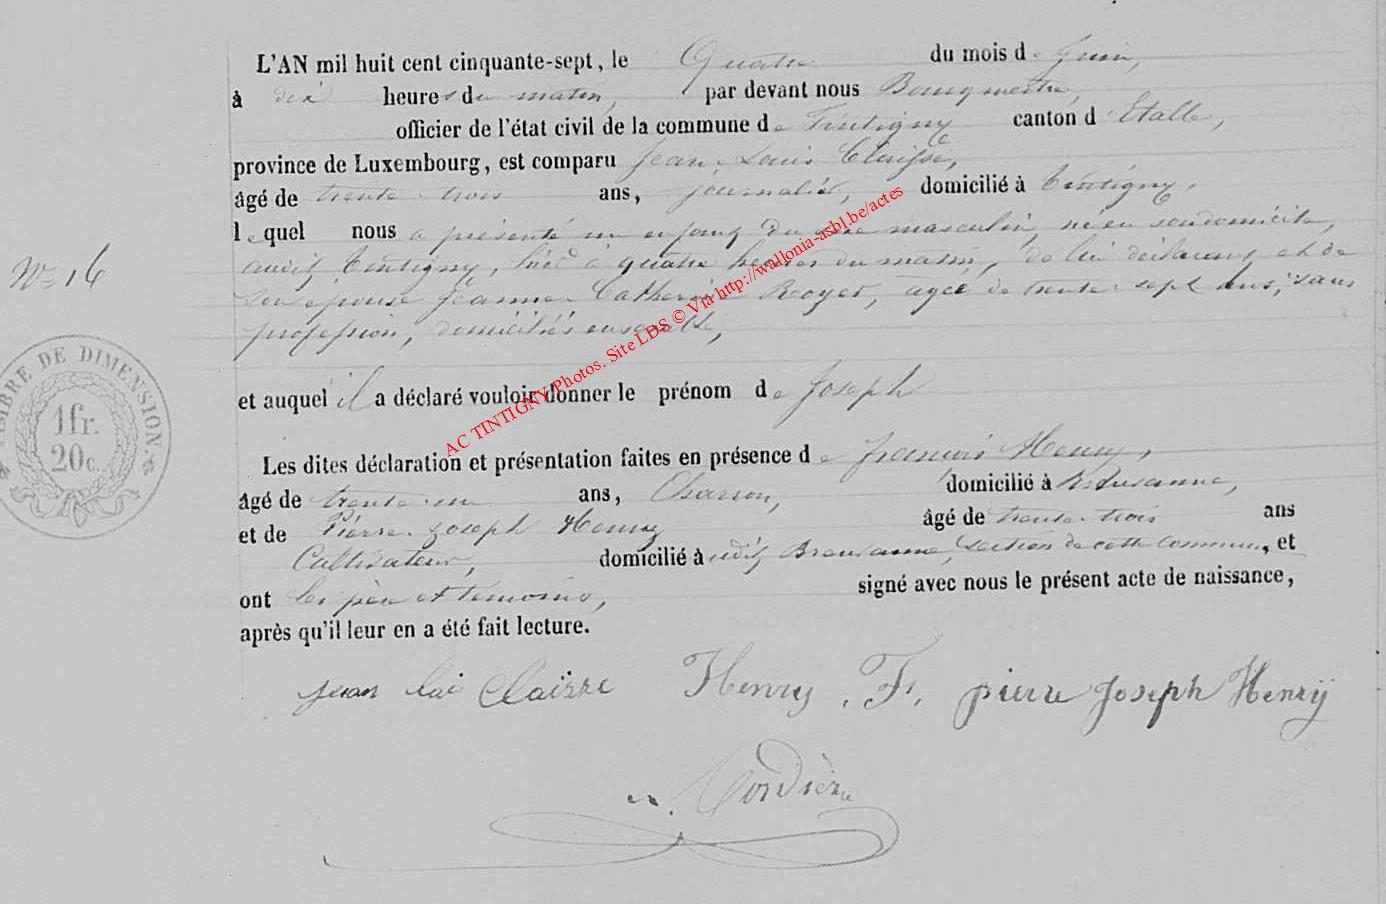 L'AN mil huit cent cinquante-sept, le Quatre du mois de Juin,
à dix heures du matin, par devant nous Bourgmestre,
officier de l'état civil de la commune de Tintigny canton d'Etalle,
province de Luxembourg, est comparu Jean-Louis Claisse,
âgé de trente trois ans, journalier, domicilié à Tintigny,
lequel nous a présenté un enfant du sexe masculin, né en son domicile,
audit Tintigny, à quatre heures du matin, de lui déclarant, et de
son épouse Jeanne Catherine Royer, agée de trente sept ans, sans
profession, domiciliés ensemble,
N° 16
TIMBRE DE DIMENSION
1 fr.
20 c.
et auquel il a déclaré vouloir donner le prénom de Joseph
Les dites déclaration et présentation faites en présence de François Henry,
âgé de trente-un ans, Charron, domicilié à
et de Pierre-Joseph Henry âgé de trente-trois ans
Cultivateur, domicilié à section de cette commune, et
ont les père et témoins, signé avec nous le présent acte de naissance,
après qu'il leur en a été fait lecture.
jean Claisse Henry. F. pierre joseph Henrÿ
AC TINTIGNY Photos. Site LDS © Via http://wallonia-asbl.be/actes